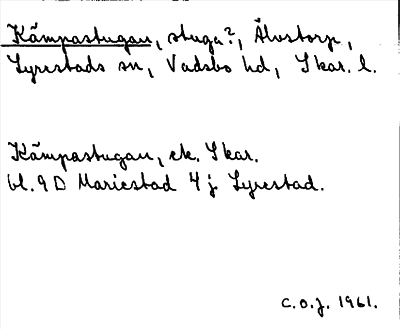 Kämpastugan, stuga?, Älvstorp,
Lyrestads sn, Vadsbo hd, Skar. l.
Kämpastugan, ek. Skar.
bl. 9 D Mariestad 4 j Lyrestad.
C.O.J. 1961.